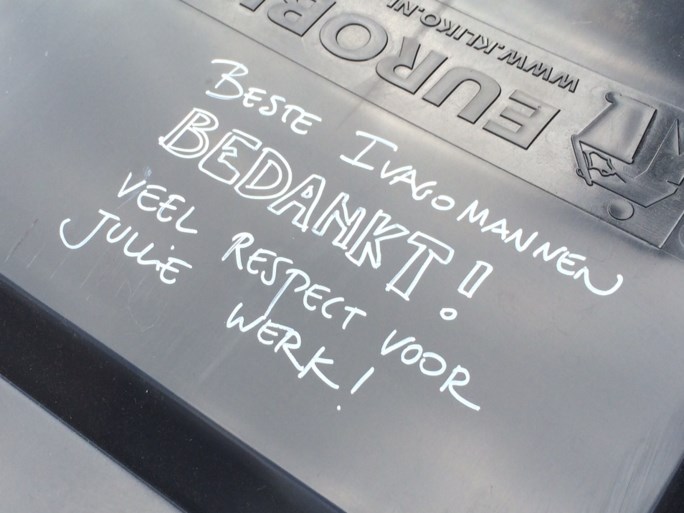 BESTE IVAGO MANNEN
BEDANKT!
VEEL RESPECT VOOR
JULLIE WERK!
WWW.KLIKO.NL